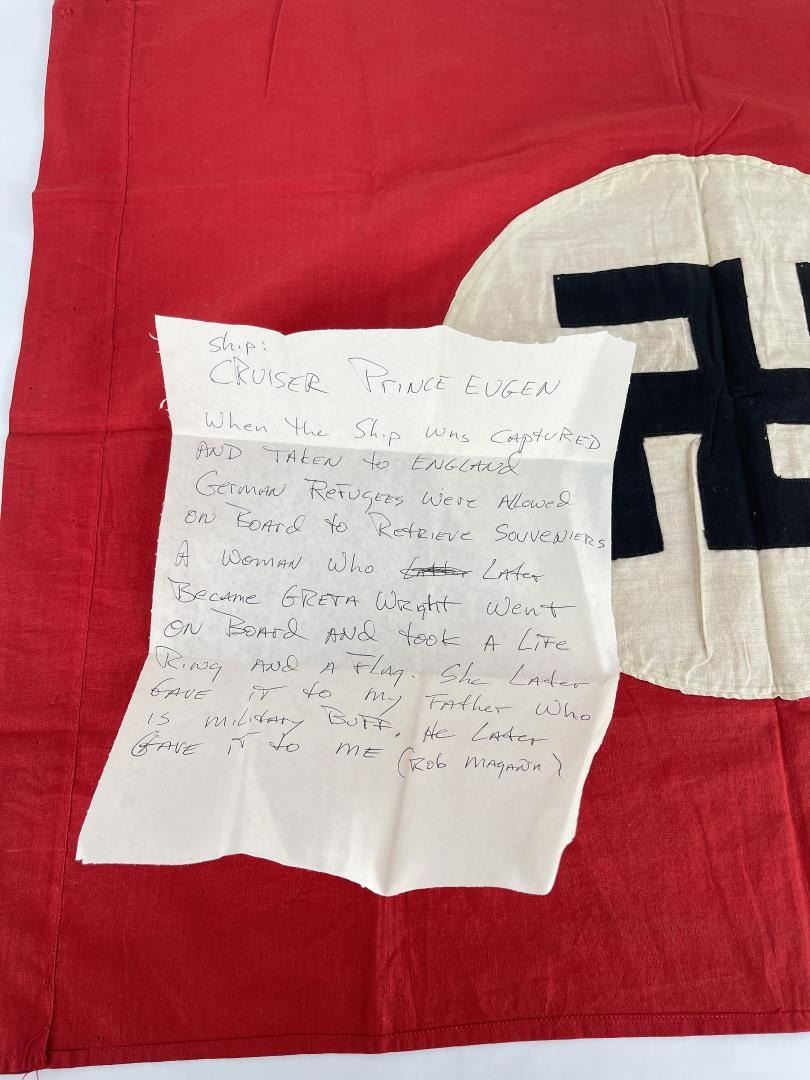 Ship:
CRUISER PRINCE EUGEN
When the Ship was CAPTURED
AND TAKEN to ENGLAND
German Refugees were Allowed
on Board to Retrieve Souveniers
A woman who Later
Became GRETA Wright went
on Board AND took A Life
Ring AND A Flag. She Later
Gave it to my Father who
is military Buff. He Later
Gave it to me (Rob Magann)